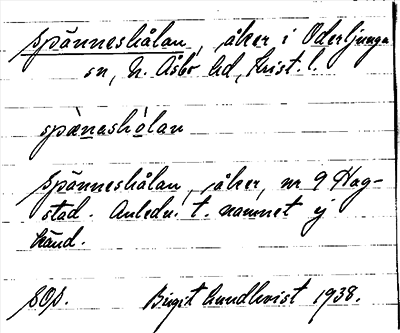 Spånneshålan, åker i Oderljunga
sn, N. Åsbo hd, Krist. l.
spåneshòlan
Spånneshålan, åker, nr 9 Hag-
stad. Anledn. t. namnet ej
känd.
SOS. Birgit Lundkvist 1938.